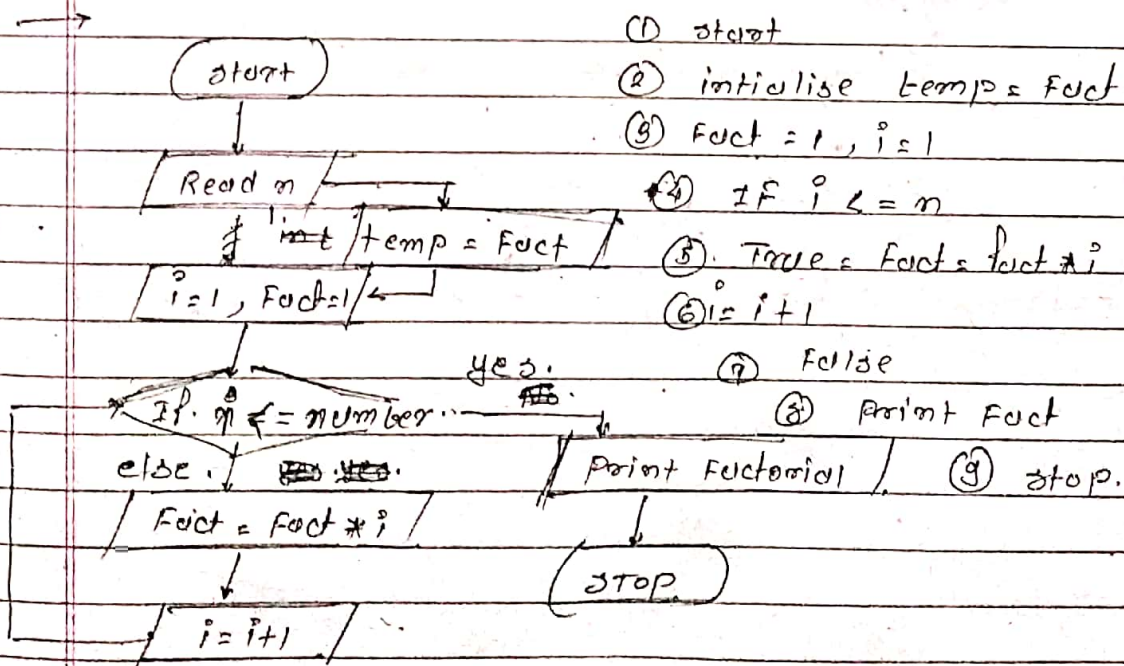 start
Read n
temp = Fact
i=1, Fact=1
If. i <= number..
yes.
else.
Print Factorial
Fact = Fact * i
STOP
i = i+1
① start
② intialise temp = Fact
③ Fact = 1, i=1
④ IF i <= n
⑤. True = Fact = fact * i
⑥ i = i+1
⑦ Fallse
⑧ Print Fact
⑨ stop.